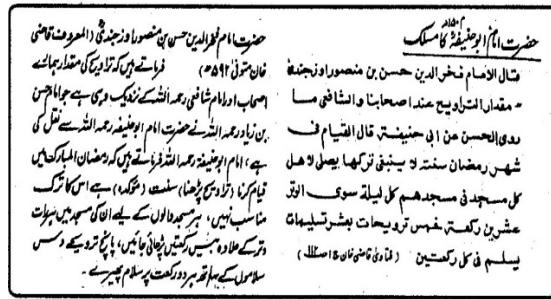 حضرت امام ابو حنیفہؒ کا مسلک
م ۱۵۰ھ
قال الامام فخر الدین حسن بن منصور اوزجندی
مقدار التراویح عند اصحابنا والشافعی ما
روی الحسن عن ابی حنیفۃ قال القیام فی
شهر رمضان سنت لا ینبغی ترکها یصلی لاهل
کل مسجد فی مسجدهم کل لیلة سوی الوتر
عشرین رکعة خمس ترویحات بعشر تسلیمات
یسلم فی کل رکعتین (فتاویٰ قاضی خان ج۱ ص)
حضرت امام فخر الدین حسن بن منصور اوزجندیؒ (المعروف قاضی
خان متوفی ۵۹۲ھ) فرماتے ہیں کہ تراویح کی مقدار ہمارے
اصحاب اور امام شافعی رحمہ اللہ کے نزدیک وہی ہے جو امام حسن
بن زیاد رحمہ اللہ نے حضرت امام ابو حنیفہ رحمہ اللہ سے نقل کی
ہے، امام ابو حنیفہ رحمہ اللہ فرماتے ہیں کہ رمضان المبارک میں
قیام کرنا (تراویح پڑھنا) سنت (مؤکدہ) ہے اس کا ترک
مناسب نہیں، ہر مسجد والوں کے لیے ان کی مسجد میں ہر رات
وتر کے علاوہ بیس رکعتیں پڑھائی جائیں، پانچ ترویحے دس
سلاموں کے ساتھ ہر دو رکعت پر سلام پھیرے۔